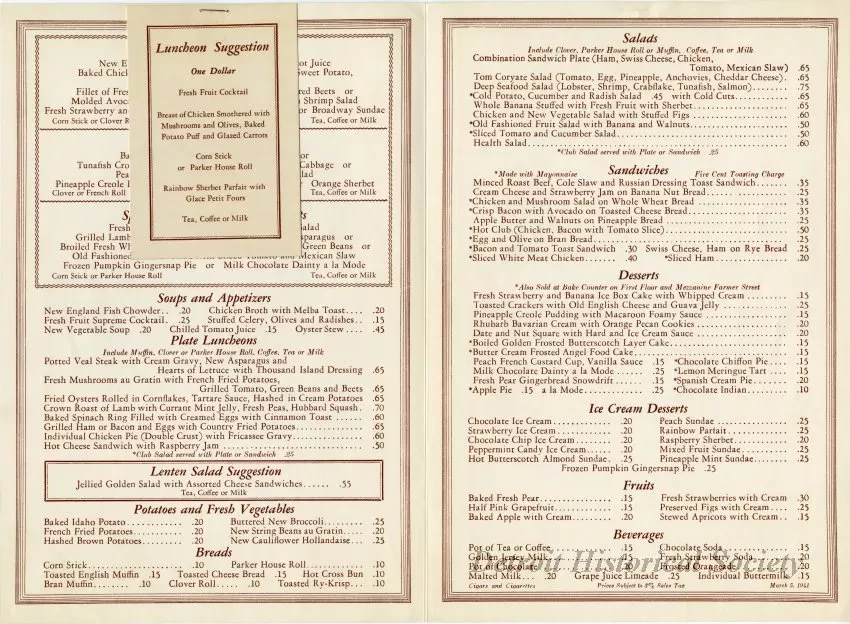 Luncheon Suggestion
One Dollar
Fresh Fruit Cocktail
Breast of Chicken Smothered with
Mushrooms and Olives, Baked
Potato Puff and Glazed Carrots
Corn Stick
or Parker House Roll
Rainbow Sherbet Parfait with
Glace Petit Fours
Tea, Coffee or Milk
New E
ot Juice
Baked Chick
Sweet Potato,
Fillet of Fres
red Beets or
Molded Avoc
Shrimp Salad
Fresh Strawberry an
or Broadway Sundae
Corn Stick or Clover R
Tea, Coffee or Milk
Ba
or
Tunafish Cro
Cabbage or
Pea
lad
Pineapple Creole
Orange Sherbet
Clover or French Roll
Tea, Coffee or Milk
Fresh
alad
Grilled Lamb
sparagus or
Broiled Fresh Wh
Green Beans or
Old Fashioned
Mexican Slaw
Frozen Pumpkin Gingersnap Pie or Milk Chocolate Dainty a la Mode
Corn Stick or Parker House Roll Tea, Coffee or Milk
Soups and Appetizers
New England Fish Chowder.. .20 Chicken Broth with Melba Toast.... .20
Fresh Fruit Supreme Cocktail. .25 Stuffed Celery, Olives and Radishes.. .15
New Vegetable Soup .20 Chilled Tomato Juice .15 Oyster Stew.... .45
Plate Luncheons
Include Muffin, Clover or Parker House Roll, Coffee, Tea or Milk
Potted Veal Steak with Cream Gravy, New Asparagus and
Hearts of Lettuce with Thousand Island Dressing .65
Fresh Mushrooms au Gratin with French Fried Potatoes,
Grilled Tomato, Green Beans and Beets .65
Fried Oysters Rolled in Cornflakes, Tartare Sauce, Hashed in Cream Potatoes .65
Crown Roast of Lamb with Currant Mint Jelly, Fresh Peas, Hubbard Squash. .70
Baked Spinach Ring Filled with Creamed Eggs with Cinnamon Toast...... .60
Grilled Ham or Bacon and Eggs with Country Fried Potatoes............ .65
Individual Chicken Pie (Double Crust) with Fricassee Gravy............ .60
Hot Cheese Sandwich with Raspberry Jam.................... .50
*Club Salad served with Plate or Sandwich .25
Lenten Salad Suggestion
Jellied Golden Salad with Assorted Cheese Sandwiches...... .55
Tea, Coffee or Milk
Potatoes and Fresh Vegetables
Baked Idaho Potato............ .20 Buttered New Broccoli........ .25
French Fried Potatoes.......... .20 New String Beans au Gratin.... .20
Hashed Brown Potatoes........ .20 New Cauliflower Hollandaise.... .25
Breads
Corn Stick.................. .10 Parker House Roll............ .10
Toasted English Muffin .15 Toasted Cheese Bread .15 Hot Cross Bun .10
Bran Muffin....... .10 Clover Roll..... .10 Toasted Ry-Krisp... .10
Salads
Include Clover, Parker House Roll or Muffin, Coffee, Tea or Milk
Combination Sandwich Plate (Ham, Swiss Cheese, Chicken,
Tomato, Mexican Slaw) .65
Tom Coryate Salad (Tomato, Egg, Pineapple, Anchovies, Cheddar Cheese). .65
Deep Seafood Salad (Lobster, Shrimp, Crabflake, Tunafish, Salmon)....... .75
*Cold Potato, Cucumber and Radish Salad .45 with Cold Cuts........ .65
Whole Banana Stuffed with Fresh Fruit with Sherbet................. .65
Chicken and New Vegetable Salad with Stuffed Figs.................. .60
*Old Fashioned Fruit Salad with Banana and Walnuts................. .50
*Sliced Tomato and Cucumber Salad.......................... .50
Health Salad...................................... .60
*Club Salad served with Plate or Sandwich .25
Sandwiches
*Made with Mayonnaise Five Cent Toasting Charge
Minced Roast Beef, Cole Slaw and Russian Dressing Toast Sandwich....... .35
Cream Cheese and Strawberry Jam on Banana Nut Bread.............. .25
*Chicken and Mushroom Salad on Whole Wheat Bread............... .35
*Crisp Bacon with Avocado on Toasted Cheese Bread................. .35
Apple Butter and Walnuts on Pineapple Bread..................... .25
*Hot Club (Chicken, Bacon with Tomato Slice)..................... .50
*Egg and Olive on Bran Bread............................... .25
*Bacon and Tomato Toast Sandwich .30 Swiss Cheese, Ham on Rye Bread .25
*Sliced White Meat Chicken....... .40 *Sliced Ham............. .20
Desserts
*Also Sold at Bake Counter on First Floor and Mezzanine Farmer Street
Fresh Strawberry and Banana Ice Box Cake with Whipped Cream......... .15
Toasted Crackers with Old English Cheese and Guava Jelly............. .25
Pineapple Creole Pudding with Macaroon Foamy Sauce............... .15
Rhubarb Bavarian Cream with Orange Pecan Cookies................. .20
Date and Nut Square with Hard and Ice Cream Sauce................. .20
*Boiled Golden Frosted Butterscotch Layer Cake..................... .15
*Butter Cream Frosted Angel Food Cake.......................... .15
Peach French Custard Cup, Vanilla Sauce .15 *Chocolate Chiffon Pie.... .15
Milk Chocolate Dainty a la Mode...... .25 *Lemon Meringue Tart... .15
Fresh Pear Gingerbread Snowdrift...... .15 *Spanish Cream Pie...... .20
*Apple Pie .15 a la Mode............ .25 *Chocolate Indian........ .10
Ice Cream Desserts
Chocolate Ice Cream............ .20 Peach Sundae............... .25
Strawberry Ice Cream........... .20 Rainbow Parfait............. .25
Chocolate Chip Ice Cream....... .20 Raspberry Sherbet............ .20
Peppermint Candy Ice Cream.... .20 Mixed Fruit Sundae........... .25
Hot Butterscotch Almond Sundae. .25 Pineapple Mint Sundae........ .25
Frozen Pumpkin Gingersnap Pie .25
Fruits
Baked Fresh Pear.............. .15 Fresh Strawberries with Cream .30
Half Pink Grapefruit........... .15 Preserved Figs with Cream.... .25
Baked Apple with Cream........ .20 Stewed Apricots with Cream.. .15
Beverages
Pot of Tea or Coffee........... .15 Chocolate Soda.............. .15
Golden Jersey Milk............ .15 Fresh Strawberry Soda........ .20
Pot of Chocolate.............. .20 Frosted Orangeade........... .20
Malted Milk... .20 Grape Juice Limeade .25 Individual Buttermilk .15
Cigars and Cigarettes Prices Subject to 3% Sales Tax March 5, 1941
Detroit Historical Society